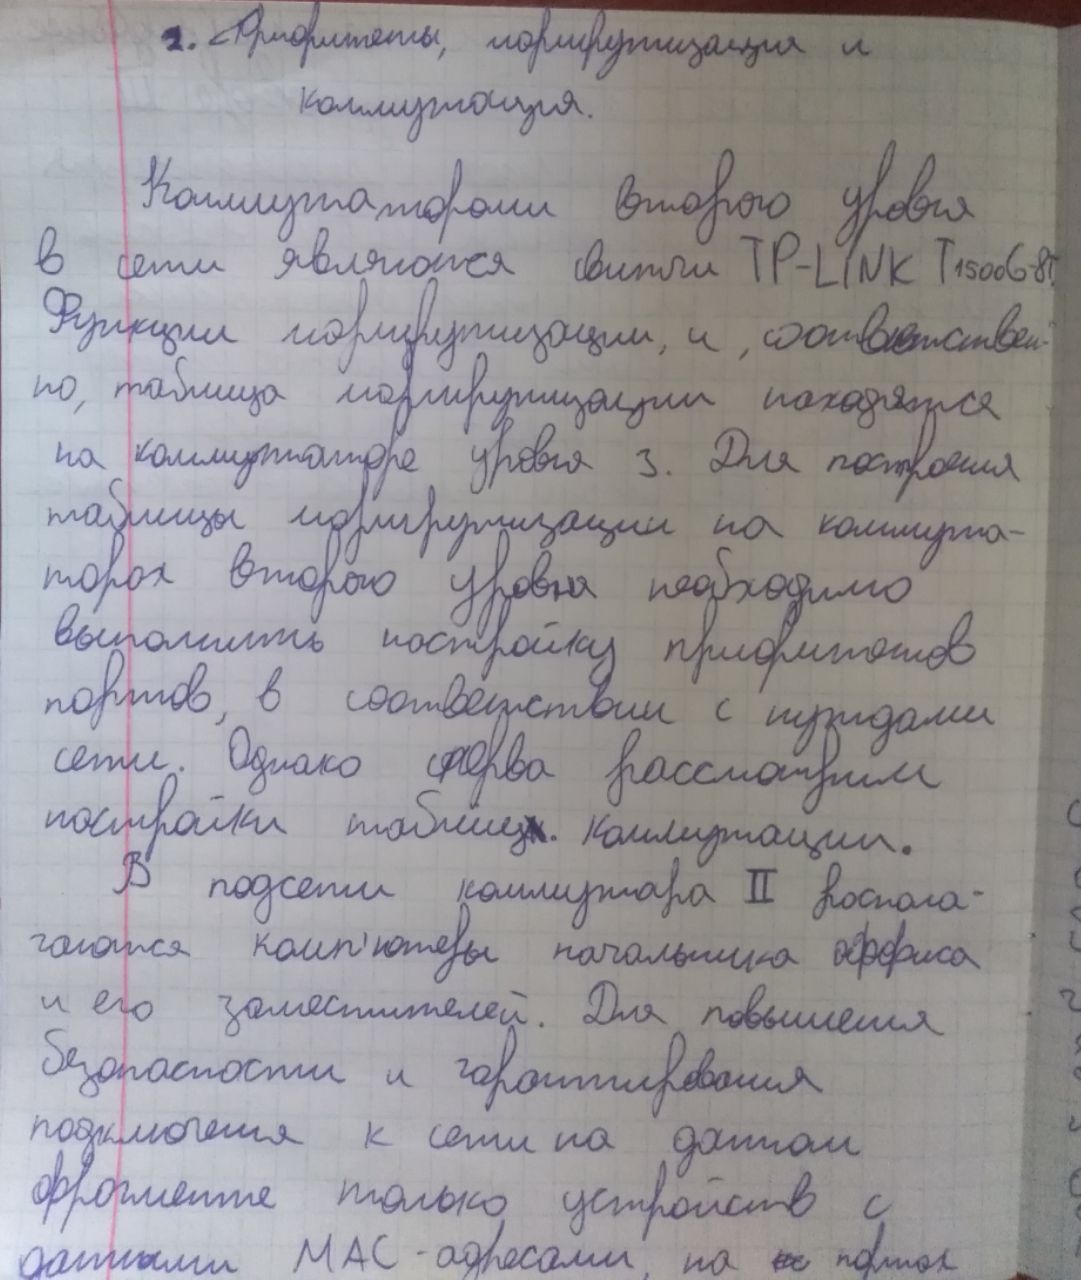 1. Приоритеты, маршрутизация и
коммутация.
Коммутаторами второго уровня
в сети являются свитчи TP-LINK T1500G-8T.
Функции маршрутизации, и, соответствен-
но, таблица маршрутизации находятся
на коммутаторе уровня 3. Для построения
таблицы маршрутизации на коммута-
торах второго уровня необходимо
выполнить настройку приоритетов
портов, в соответствии с нуждами
сети. Однако сперва рассмотрим
настройки таблиц. коммутации.
В подсети коммутара II распола-
гаются комп'ютеры начальника оффиса
и его заместителей. Для повышения
безопасности и гарантирования
подключения к сети на данном
фрагменте только устройств с
данными MAC-адресами, на портах